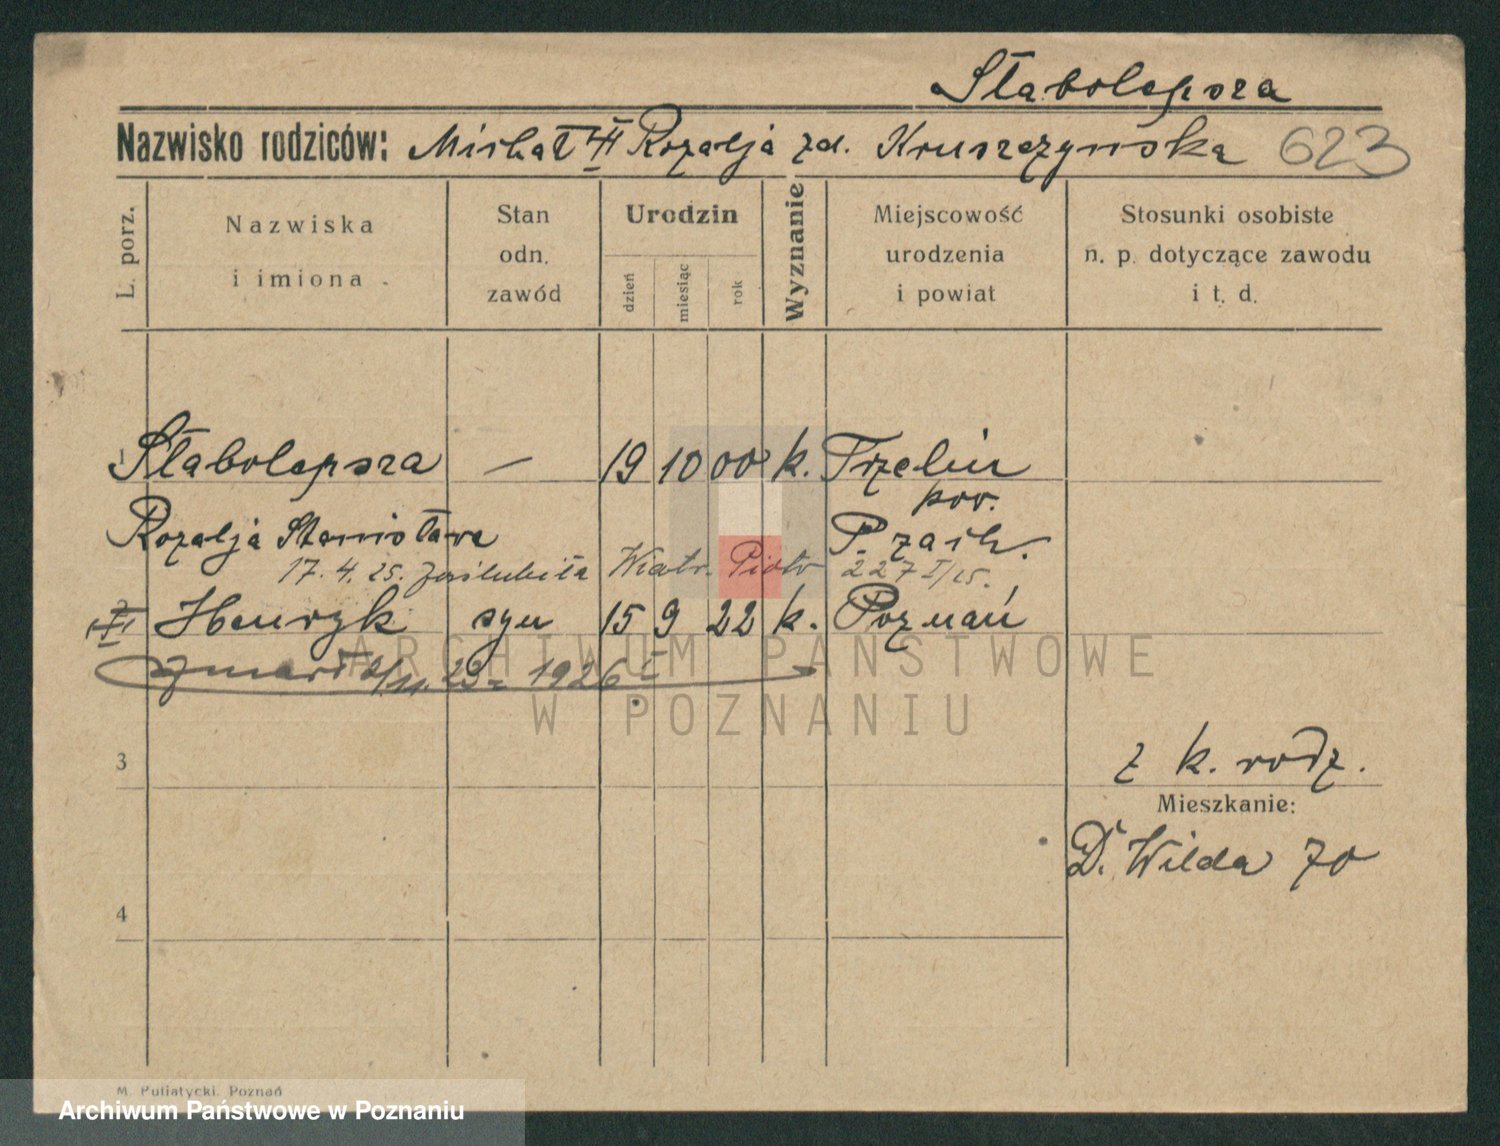 Słabolepsza
Nazwisko rodziców: Michał Rozalja zd. Kruszczyńska 623
L. porz.
Nazwiska i imiona
Stan odn. zawód
Urodzin
dzień
miesiąc
rok
Wyznanie
Miejscowość urodzenia i powiat
Stosunki osobiste n. p. dotyczące zawodu i t. d.
1 Słabolepsza — 19 10 00 k. Trzebin
pow.
Rozalja Stanisława
17. 4. 25. zaślubiła Wiatr. Piotr 227 I/25.
2 Henryk syn 15 9 22 k. Poznań
zmarł 2/11. 23 1926
ARCHIWUM PAŃSTWOWE
W POZNANIU
3
z k. rodz.
Mieszkanie:
D. Wilda 70
4
M. Putiatycki, Poznań
Archiwum Państwowe w Poznaniu